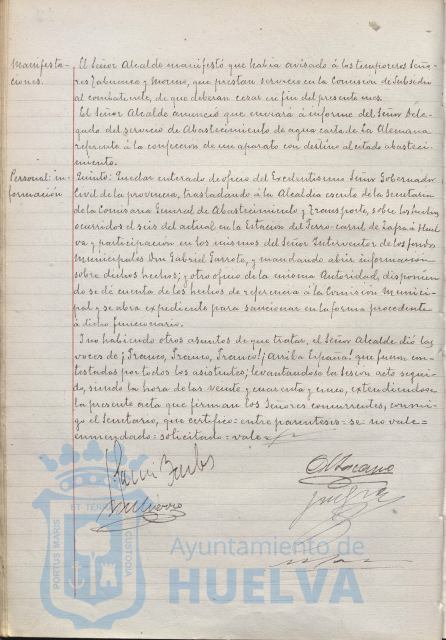 Manifesta-
ciones.
El Señor Alcalde manifestó que había avisado á los temporeros Seño-
res Zabunco y Moreno, que prestan servicio en la Comision de Subsidio
al combatiente, de que deberan cesar en fin del presente mes.
El Señor Alcalde anunció que enviará á informe del Señor Dele-
gado del servicio de Abastecimiento de agua carta de la Alemana
referente á la confeccion de un aparato con destino al citado abasteci-
miento.
Personal: in-
formación
Quinto: Quedar enterado de oficio del Excelentísimo Señor Gobernador
Civil de la provincia, trasladando á la Alcaldia escrito de la Secretaria
de la Comisaria General de Abastecimiento y Transporte, sobre los hechos
ocurridos el seis del actual en la Estacion del Ferro-carril de Zafra á Huel
va y participacion en los mismos del Señor Interventor de los fondos
Municipales Don Gabriel Garrote, y mandando abrir informacion
sobre dichos hechos; y otro oficio de la misma Autoridad, disponien
do se dé cuenta de los hechos de referencia á la Comisión Munici-
pal y se abra expediente para sancionar en la forma procedente
á dicho funcionario.
Y no habiendo otros asuntos de que tratar, el Señor Alcalde dió las
voces de ¡Franco, Franco, Franco! ¡Arriba España! que fueron con-
testadas por todos los asistentes; levantandose la Sesion acto segui-
do, siendo la hora de las veinte y cincuenta y cinco, extendiendose
la presente acta que firman los Señores concurrentes, conmi-
go el Secretario, que certifico = entre parentesis = se = no vale =
enmendado = solicitado = vale =
PORTUS MARIS ET TERRAE CUSTODIA
Ayuntamiento de
HUELVA